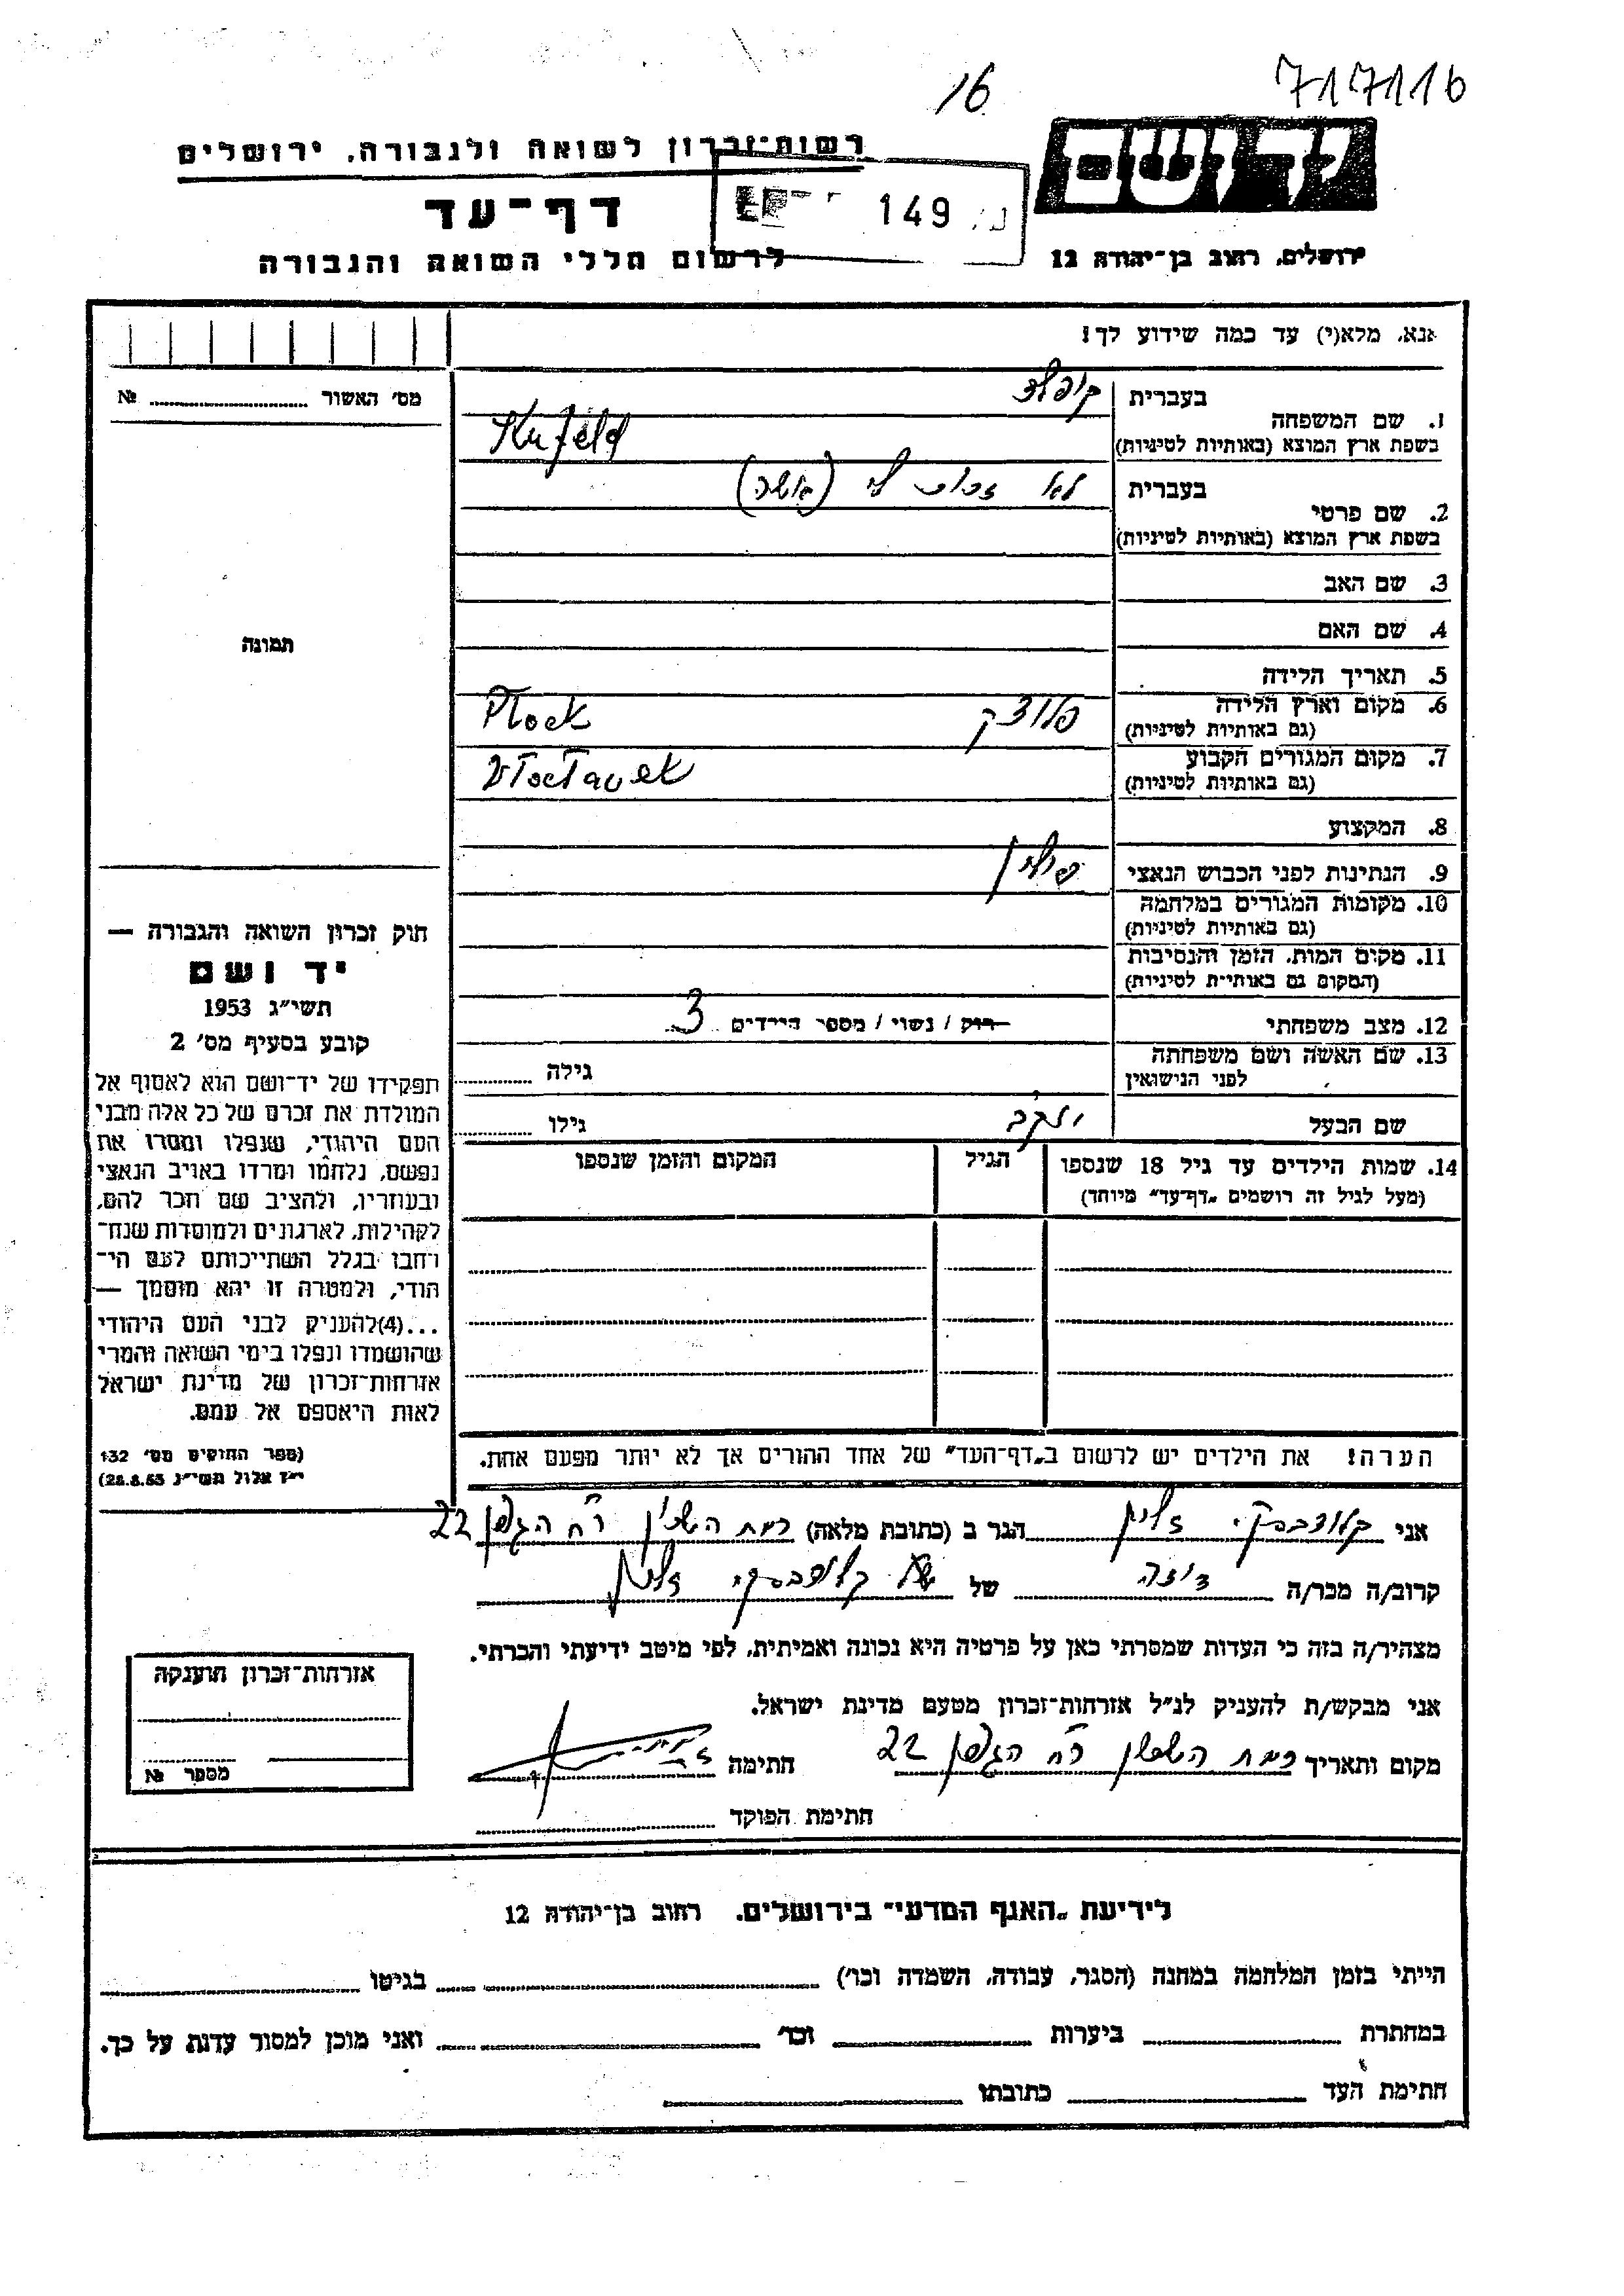 16
717116
רשות־זכרון לשואה ולגבורה, ירושלים
יד ושם
149
דף־עד
לרשום חללי השואה והגבורה
ירושלים, רחוב בן־יהודה 12
אנא, מלא(י) עד כמה שידוע לך!
מס׳ האשור ........ №
בעברית קופלד
1. שם המשפחה
בשפת ארץ המוצא (באותיות לטיניות) Kufeld
בעברית לא זכור לי (אשה)
2. שם פרטי
בשפת ארץ המוצא (באותיות לטיניות)
3. שם האב
4. שם האם
תמונה
5. תאריך הלידה
6. מקום וארץ הלידה פלוצק Płock
(גם באותיות לטיניות)
7. מקום המגורים הקבוע Włocławek
(גם באותיות לטיניות)
8. המקצוע
9. הנתינות לפני הכבוש הנאצי פולין
10. מקומות המגורים במלחמה
(גם באותיות לטיניות)
11. מקום המות, הזמן והנסיבות
(המקום גם באותיות לטיניות)
12. מצב משפחתי רוק / נשוי / מספר הילדים 3
13. שם האשה ושם משפחתה
לפני הנישואין
גילה
שם הבעל יעקב גילו
14. שמות הילדים עד גיל 18 שנספו
(מעל לגיל זה רושמים „דף־עד" מיוחד)
הגיל
המקום והזמן שנספו
חוק זכרון השואה והגבורה —
יד ושם
תשי״ג 1953
קובע בסעיף מס׳ 2
תפקידו של יד־ושם הוא לאסוף אל
המולדת את זכרם של כל אלה מבני
העם היהודי, שנפלו ומסרו את
נפשם, נלחמו ומרדו באויב הנאצי
ובעוזריו, ולהציב שם וזכר להם,
לקהילות, לארגונים ולמוסדות שנח־
רבו בגלל השתייכותם לעם הי־
הודי, ולמטרה זו יהא מוסמך —
...(4)להעניק לבני העם היהודי
שהושמדו ונפלו בימי השואה והמרי
אזרחות־זכרון של מדינת ישראל
לאות היאספם אל עמם.
(ספר החוקים מס׳ 132
י״ז אלול תשי״ג 28.8.53)
הערה! את הילדים יש לרשום ב„דף־העד" של אחד ההורים אך לא יותר מפעם אחת.
אני הגר ב (כתובת מלאה) רמת השרון רח הגפן 22
קרוב/ה מכר/ה דודה של
מצהיר/ה בזה כי העדות שמסרתי כאן על פרטיה היא נכונה ואמיתית, לפי מיטב ידיעתי והכרתי.
אני מבקש/ת להעניק לנ״ל אזרחות־זכרון מטעם מדינת ישראל.
מקום ותאריך רמת השרון רח הגפן 22 חתימה
חתימת הפוקד
אזרחות־זכרון הוענקה
מספר №
לידיעת „האגף המדעי" בירושלים, רחוב בן־יהודה 12
הייתי בזמן המלחמה במחנה (הסגר, עבודה, השמדה וכו׳) בגיטו
במחתרת ביערות וכו׳ ואני מוכן למסור עדות על כך.
חתימת העד כתובתו